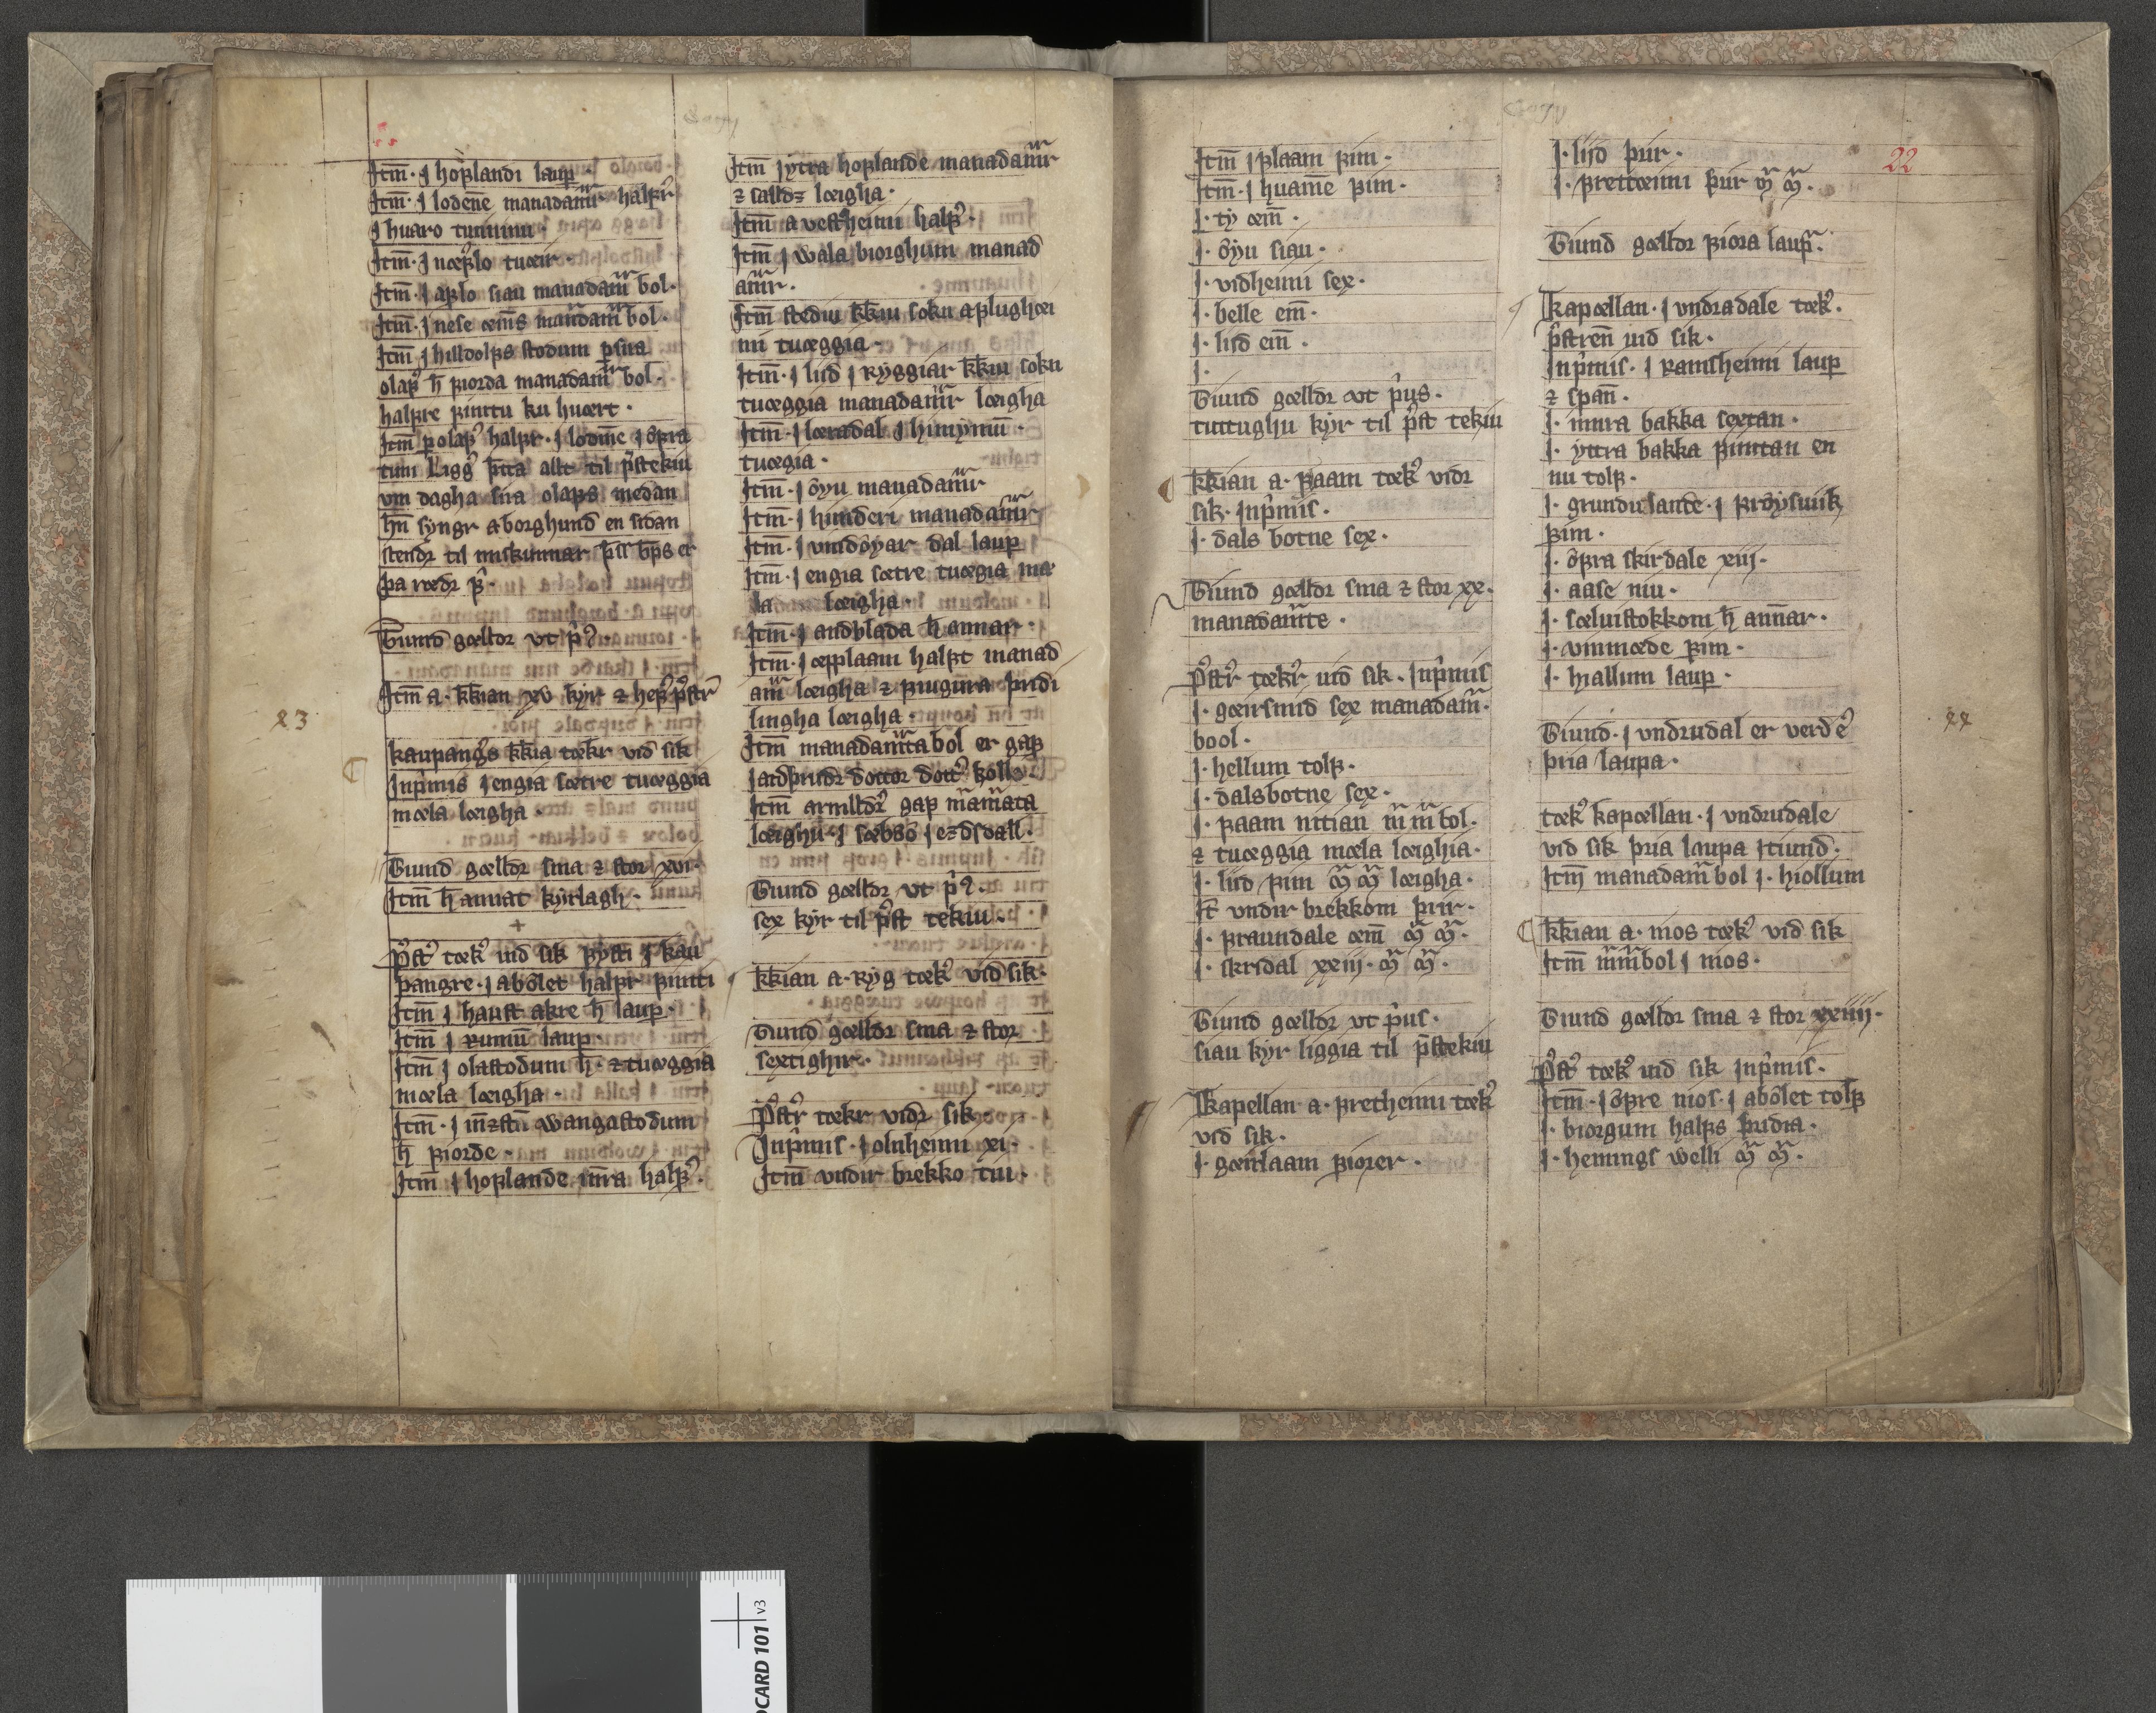 Itm̄· j hoꝼlandi laup·
Itm̄· j lodene manadam̄r halꝼr
j huaro tuninni·
Itm̄· j nœꝼslo tuœir·
Itm̄· j aꝼlo siau manadam̄ bol·
Itm̄· j nese œins manadam̄ bol·
Itm̄ j hilldolꝼs stodum ꝑ sira
olaꝼ h̄ ꝼiorda manadam̄ bol·
halꝼre ꝼimtu ku huœrt·
Itm̄ ꝑ olaꝼ halꝼr· j lodine j öꝼra
tum Ligg þetta allt til p̄stekiu
vm dagha sira olaꝼs medan
hn̄ syngr a borghund en sidan
stendr til miskunnar þss bps er
þa rœdr ꝼ
Tiund gœlldr vt p̄
Itm̄ a· kkian xv kyr ⁊ heꝼ p̄str
23
kaupangrs kkia tœkr vid sik
Jnp̄mis j engia sœtre tuœggia
mœla lœigha·
Tiund gœlldr sma ⁊ stor xvi·
Itm̄ h̄ annat kyrlagh·
+
Pst tœk uid sik ꝼysti j kau
pangre· j abölet halꝼr ꝼimti
Itm̄ j haust akre h̄ laup·
Itm̄ j rumu laup·
Itm̄ j olastodum h̄· ⁊ tuœggia
mœla lœigha·
Itm̄· j wangastodum
h̄ ꝼiorde·
Itm̄ j hoꝼlande in̄ra halꝼ·
Itm̄ j ytra hoꝼlande manadam̄r
⁊ salld⁊ lœigha·
Itm̄ a vestheimi halꝼ·
Itm̄ j wala biorghum manad
am̄r·
Itm̄ stediu kkiu soku a ꝼlughœi
mi tuœggia·
Itm̄· j liid j Ryggiar kkiu soku
tuœggia manadam̄r lœigha
Itm̄· j lœradal j himymi·
tuœgia·
Itm̄· j öyu manadam̄r
Itm̄· j hunderi manadam̄r
Itm̄· j vindöyar dal laup
Itm̄· j engia sœtre tuœgia mœ
la lœigha·
Itm̄· j andblada h̄ annar·
Itm̄ j œpplaam halꝼt manad
am̄ lœigha ⁊ ꝼiugura þridi
lingha lœigha·
Itm̄ manadam̄ta bol er gaꝼ
jardþrudr dottor dott kolls
Itm̄ armlldr gaꝼ mamata
lœighu· j sœbbö j
Tiund gœlldr vt p̄
sex kyr til p̄st tekiu·
kkian a· Ryg tœk vid sik·
Tiund gœlldr sma ⁊ stor
sextighir·
Pstr tœkr vidr sik
Jnp̄mis· j olnheimi xi·
Itm̄ vndir brekko tiu·
Itm̄ j ꝼlaam ꝼim·
Itm̄· j huam̄e ꝼim·
j· ty œin̄·
j· öyu siau·
j· vidheimi sex·
j· belle ein̄·
j· lisd ein̄·
j·
Tiund gœlldr vt p̄us·
tuttughu kyr til p̄st tekiu
kkian a· ꝼaam tœk vidr
sik· Jnp̄mis·
j· dals botne sex·
Tiund gœlldr sma ⁊ stor xx·
manadam̄te·
Pstr tœkr uid sik· Jnp̄mis
j· gœirsmid sex manadam̄·
bool·
j· hellum tolꝼ·
j· dalsbotne sex·
j· ꝼaam nitian m̄ m̄ bol·
⁊ tuœggia mœla lœighia·
j· liid ꝼim m̄ m̄ lœigha·
It̄ vndir brekkom þrir·
j· ꝼraundale œin̄ m̄ m̄·
j· skrsdal xxiij· m̄ m̄·
Tiund gœlldr vt p̄us·
siau kyr liggia til p̄stekiu
Kapellan a· ꝼretheimi tœk
vid sik·
j· gœitlaam ꝼiorer·
22
j· lisd þrir·
j· ꝼrettœimi þrir m̄ m̄·
Tiund gœlldr ꝼiora laup·
Kapœllan· j vndradale tœk·
p̄stren̄ uid sik·
Jnp̄mis· j ramsheimi laup
⁊ span̄·
j· innra bakka sextan·
j· yttra bakka ꝼimtan en
nu tolꝼ·
j· grundu sande· j ꝼröysuiik
ꝼim·
j· öꝼra skirdale xiij·
j· aase niu·
j· sœluistokkom h̄ ann̄ar·
j· vinmœde ꝼim·
j· hiallum laup·
Tiund· j vndrudal er verd e
þria laupa·
tœk kapœllan· j vndrudale
vid sik þria laupa j tiund·
Itm̄ manadam̄ bol j· hiollum
kkian a· mos tœk vid sik
Itm̄ m̄m̄bol j mos·
Tiund gœlldr sma ⁊ stor xxiiij·
Pst tœk uid sik Jnp̄mis·
Itm̄· j öꝼre mos· j abölet tolꝼ
j· biorgum halꝼs þridia·
j· hemings welli m̄ m̄·
CARD 101 v3